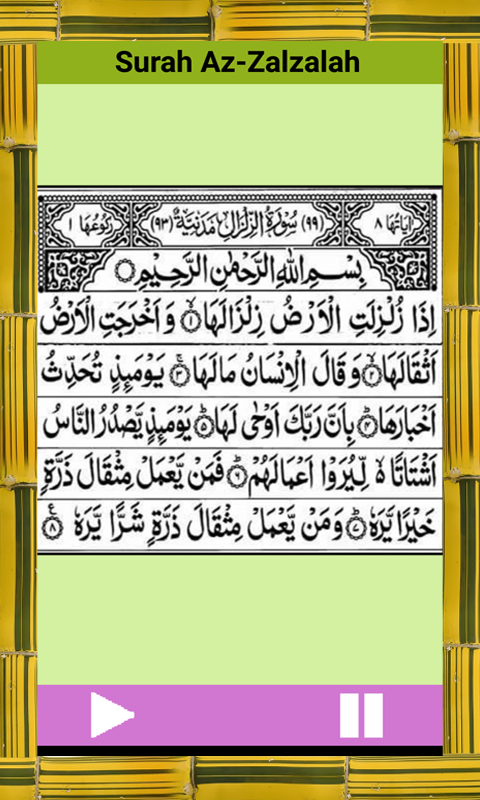 Surah Az-Zalzalah
اٰيَاتُهَا ٨ (٩٩) سُوْرَةُ الزِّلْزَالِ مَدَنِيَّةٌ (٩٣) رُكُوْعُهَا ١
بِسْمِ اللّٰهِ الرَّحْمٰنِ الرَّحِيْمِ
اِذَا زُلْزِلَتِ الْاَرْضُ زِلْزَالَهَا ۙ﴿١﴾ وَ اَخْرَجَتِ الْاَرْضُ
اَثْقَالَهَا ۙ﴿٢﴾ وَ قَالَ الْاِنْسَانُ مَا لَهَا ۚ﴿٣﴾ يَوْمَئِذٍ تُحَدِّثُ
اَخْبَارَهَا ۙ﴿٤﴾ بِاَنَّ رَبَّكَ اَوْحٰى لَهَا ؕ﴿٥﴾ يَوْمَئِذٍ يَّصْدُرُ النَّاسُ
اَشْتَاتًا ۙ لِّيُرَوْا اَعْمَالَهُمْ ؕ﴿٦﴾ فَمَنْ يَّعْمَلْ مِثْقَالَ ذَرَّةٍ
خَيْرًا يَّرَهٗ ؕ﴿٧﴾ وَ مَنْ يَّعْمَلْ مِثْقَالَ ذَرَّةٍ شَرًّا يَّرَهٗ ﴿٨﴾